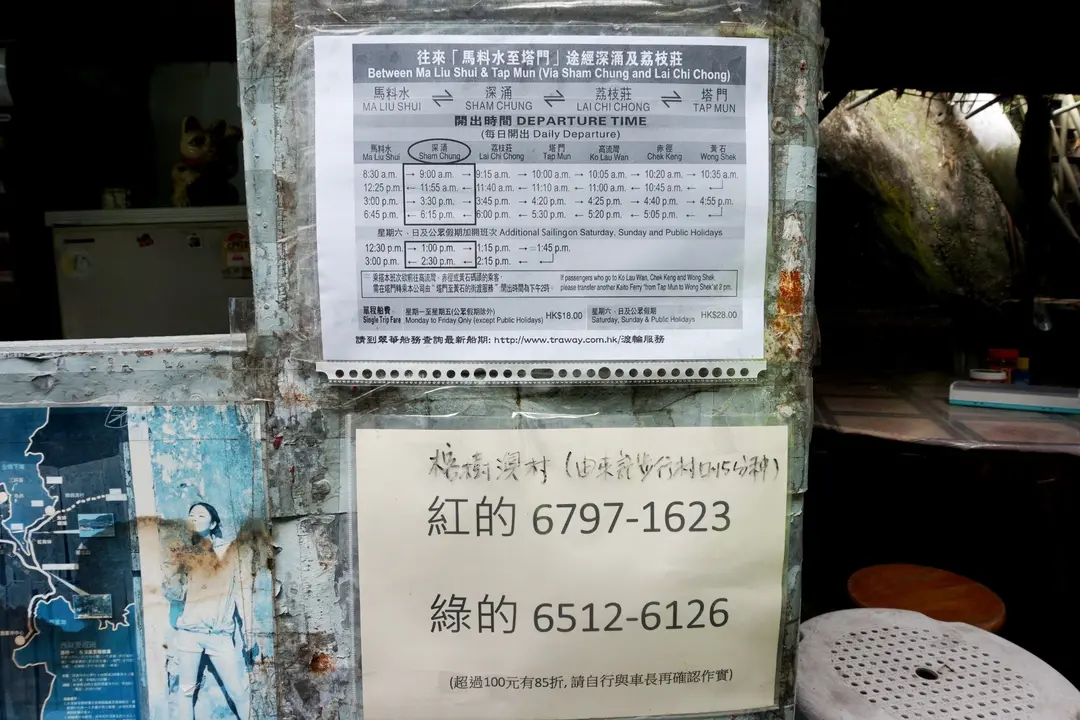 往來「馬料水至塔門」途經深涌及荔枝莊
Between Ma Liu Shui & Tap Mun (Via Sham Chung and Lai Chi Chong)
馬料水 ⇌ 深涌 ⇌ 荔枝莊 ⇌ 塔門
MA LIU SHUI SHAM CHUNG LAI CHI CHONG TAP MUN
開出時間 DEPARTURE TIME
(每日開出 Daily Departure)
馬料水 深涌 荔枝莊 塔門 高流灣 赤徑 黃石
Ma Liu Shui Sham Chung Lai Chi Chong Tap Mun Ko Lau Wan Chek Keng Wong Shek
8:30 a.m. → 9:00 a.m. → 9:15 a.m. → 10:00 a.m. → 10:05 a.m. → 10:20 a.m. → 10:35 a.m.
12:25 p.m. ← 11:55 a.m. ← 11:40 a.m. ← 11:10 a.m. ← 11:00 a.m. ← 10:45 a.m. ←
3:00 p.m. → 3:30 p.m. → 3:45 p.m. → 4:20 p.m. → 4:25 p.m. → 4:40 p.m. → 4:55 p.m.
6:45 p.m. ← 6:15 p.m. ← 6:00 p.m. ← 5:30 p.m. ← 5:20 p.m. ← 5:05 p.m. ←
星期六、日及公眾假期加開班次 Additional Sailing on Saturday, Sunday and Public Holidays
12:30 p.m. → 1:00 p.m. → 1:15 p.m. → 1:45 p.m.
3:00 p.m. ← 2:30 p.m. ← 2:15 p.m. ←
乘搭本班次欲前往高流灣, 赤徑或黃石碼頭的乘客, If passengers who go to Ko Lau Wan, Chek Keng and Wong Shek,
需在塔門轉乘本公司由"塔門至黃石的街渡服務",開出時間為下午2時。 please transfer another Kaito Ferry "from Tap Mun to Wong Shek" at 2 pm.
單程船費: 星期一至星期五(公眾假期除外) HK$18.00 星期六、日及公眾假期 HK$28.00
Single Trip Fare Monday to Friday Only (except Public Holidays) Saturday, Sunday & Public Holidays
請到翠華船務查詢最新船期: http://www.traway.com.hk/渡輪服務
榕樹澳村 (由來路步行村口15分鐘)
紅的 6797-1623
綠的 6512-6126
(超過100元有85折, 請自行與車長再確認作實)